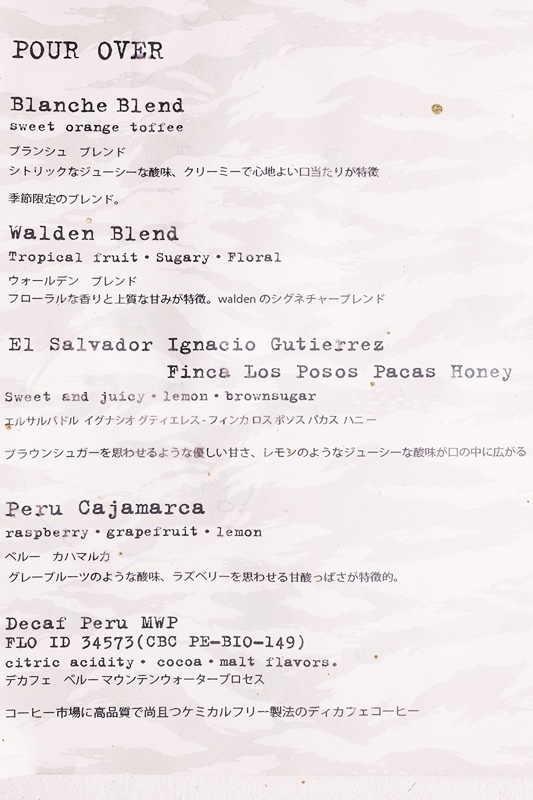 POUR OVER
Blanche Blend
sweet orange toffee
ブランシュ ブレンド
シトリックなジューシーな酸味、クリーミーで心地よい口当たりが特徴
季節限定のブレンド。
Walden Blend
Tropical fruit・Sugary・Floral
ウォールデン ブレンド
フローラルな香りと上質な甘みが特徴。walden のシグネチャーブレンド
El Salvador Ignacio Gutierrez
Finca Los Posos Pacas Honey
Sweet and juicy・lemon・brownsugar
エルサルバドル イグナシオ グティエレス - フィンカ ロス ポソス パカス ハニー
ブラウンシュガーを思わせるような優しい甘さ、レモンのようなジューシーな酸味が口の中に広がる
Peru Cajamarca
raspberry・grapefruit・lemon
ペルー カハマルカ
グレープルーツのような酸味、ラズベリーを思わせる甘酸っぱさが特徴的。
Decaf Peru MWP
FLO ID 34573(CBC PE-BIO-149)
citric acidity・ cocoa・malt flavors.
デカフェ ペルー マウンテンウォータープロセス
コーヒー市場に高品質で尚且つケミカルフリー製法のディカフェコーヒー